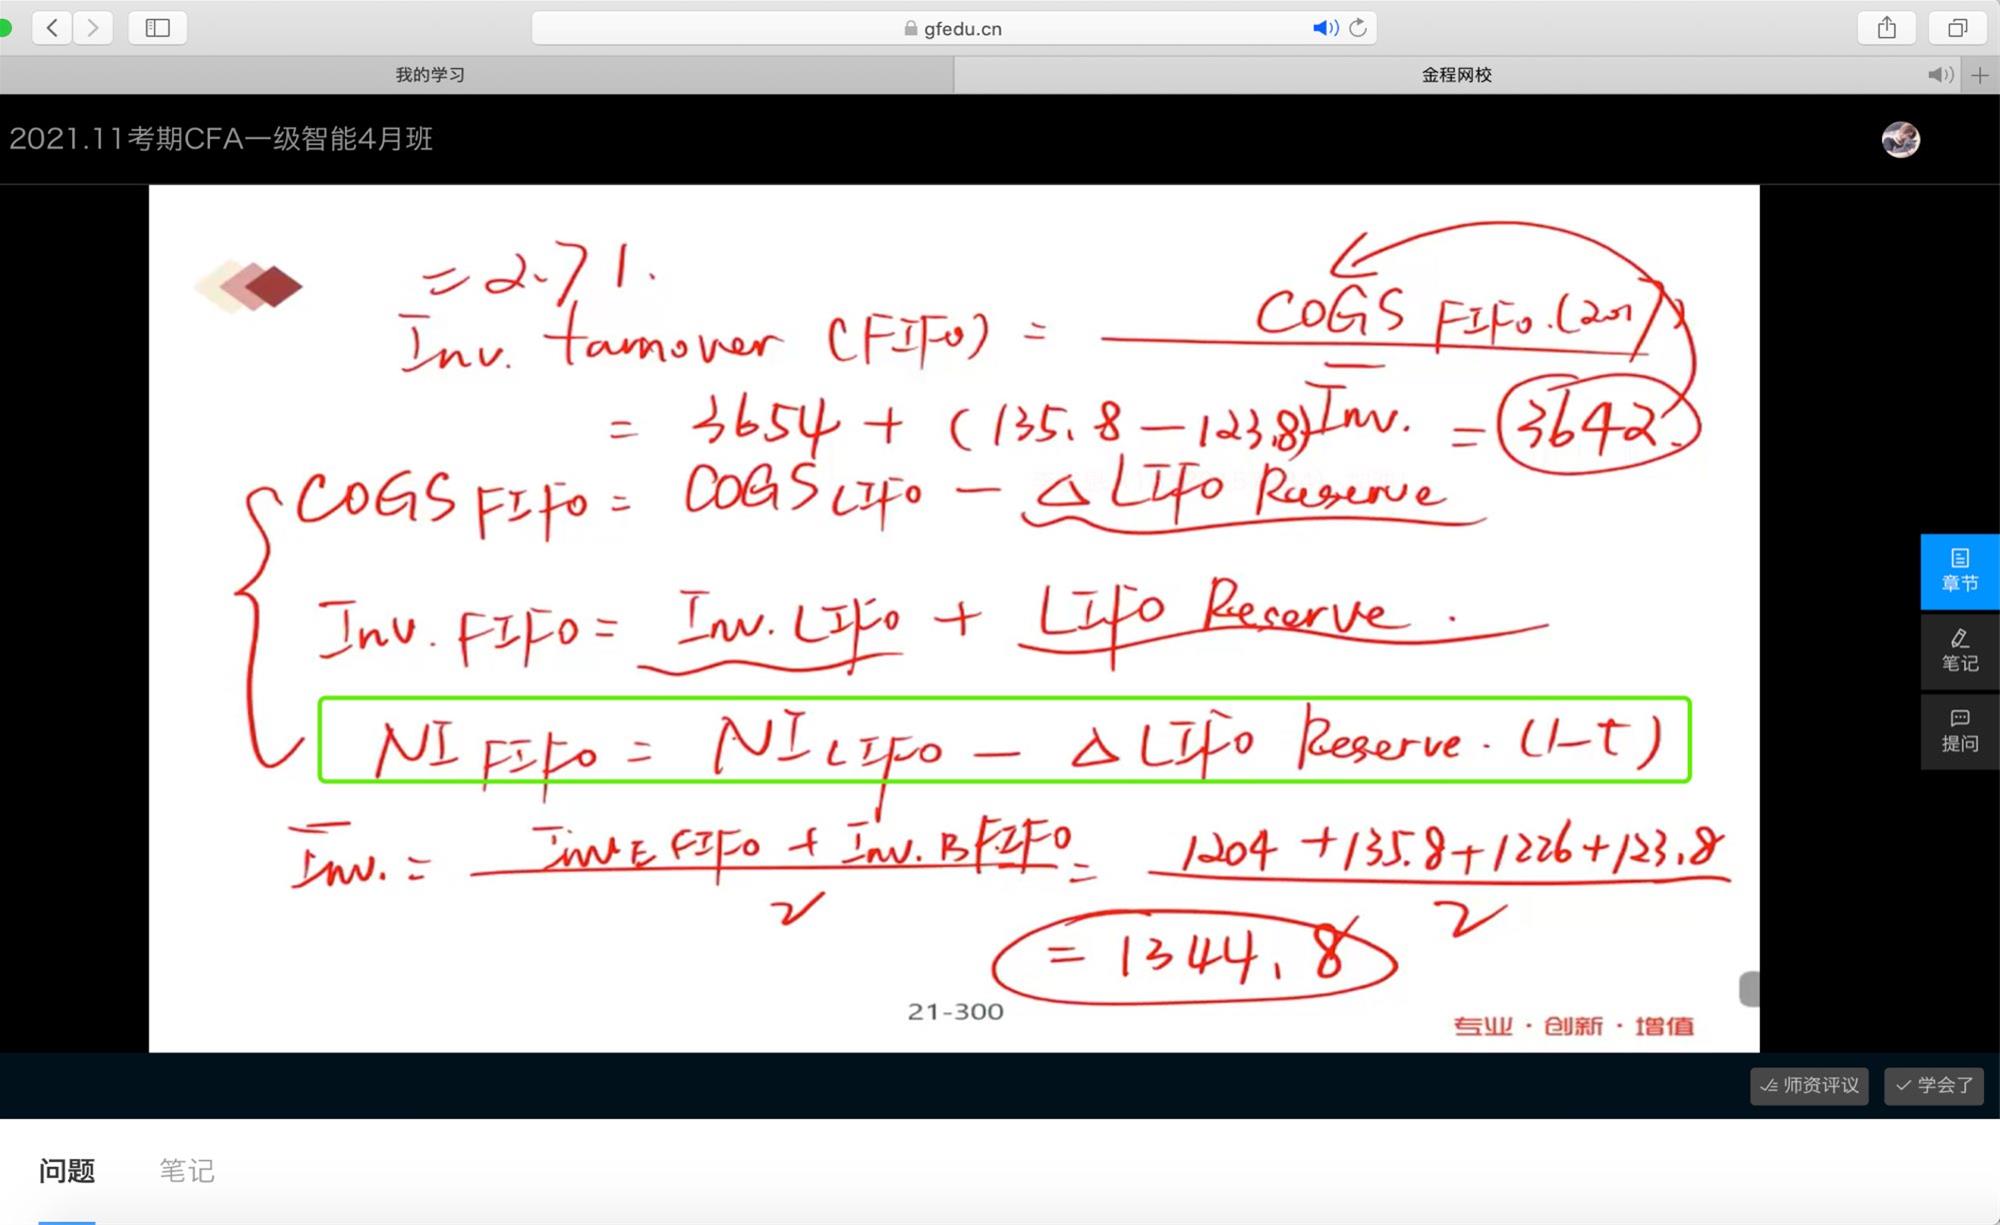 gfedu.cn
我的学习
金程网校
2021.11考期CFA一级智能4月班
= 2.71.
Inv. turnover (FIFO) = COGS FIFO.(2017)
Inv.
= 3654 + (135.8 - 123.8) = 3642.
COGS FIFO = COGS LIFO - Δ LIFO Reserve
Inv. FIFO = Inv. LIFO + LIFO Reserve.
NI FIFO = NI LIFO - Δ LIFO Reserve · (1-t)
Inv. = Inv E FIFO + Inv. B FIFO = 1204 + 135.8 + 1226 + 123.8
2 2
= 1344.8
21-300
专业 · 创新 · 增值
章节
笔记
提问
师资评议 学会了
问题 笔记